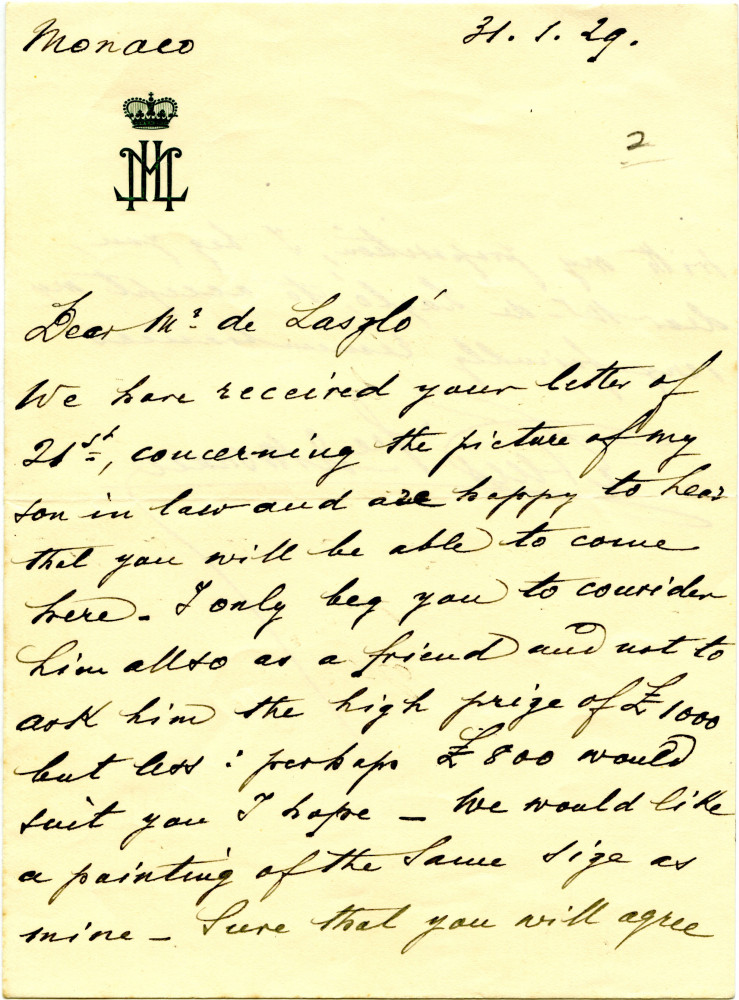 Monaco
31. 1. 29.
2
Dear Mr. de Laszló
We have received your letter of
21st, concerning the picture of my
son in law and are happy to hear
that you will be able to come
here - I only beg you to consider
him allso as a friend and not to
ask him the high prize of £1000
but less : perhaps £800 would
suit you I hope - We would like
a painting of the same size as
mine - Sure that you will agree